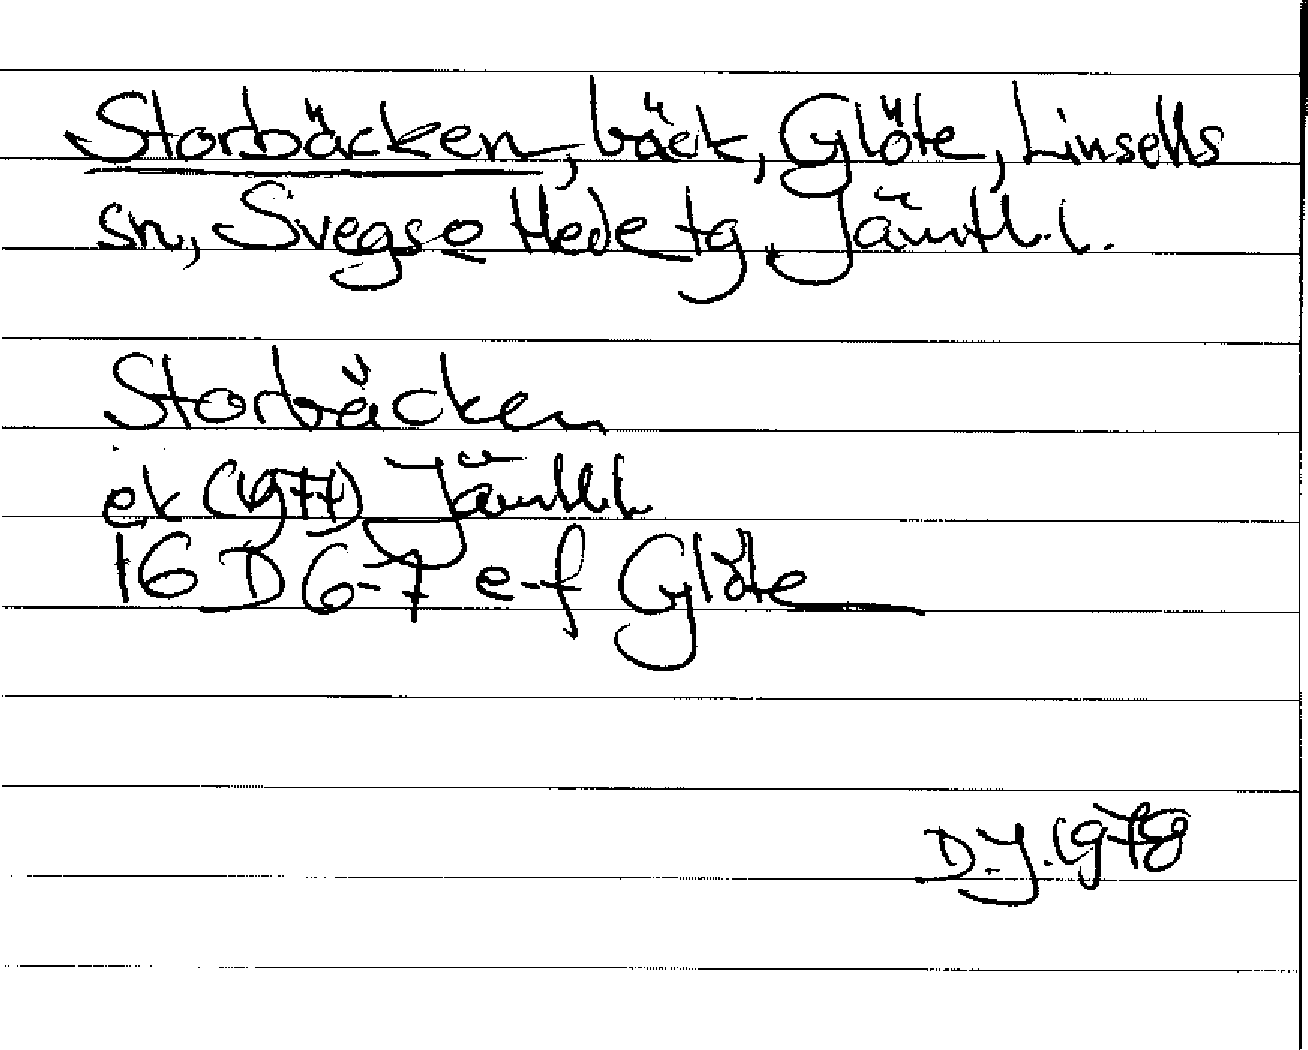 Storbäcken, bäck, Glöte, Linsells
sn, Svegs o Hede tg, Jämtl.l.
Storbäcken
ek (1971) Jämtl.l.
16 D 6-7 e-f Glöte
D.J. 1978